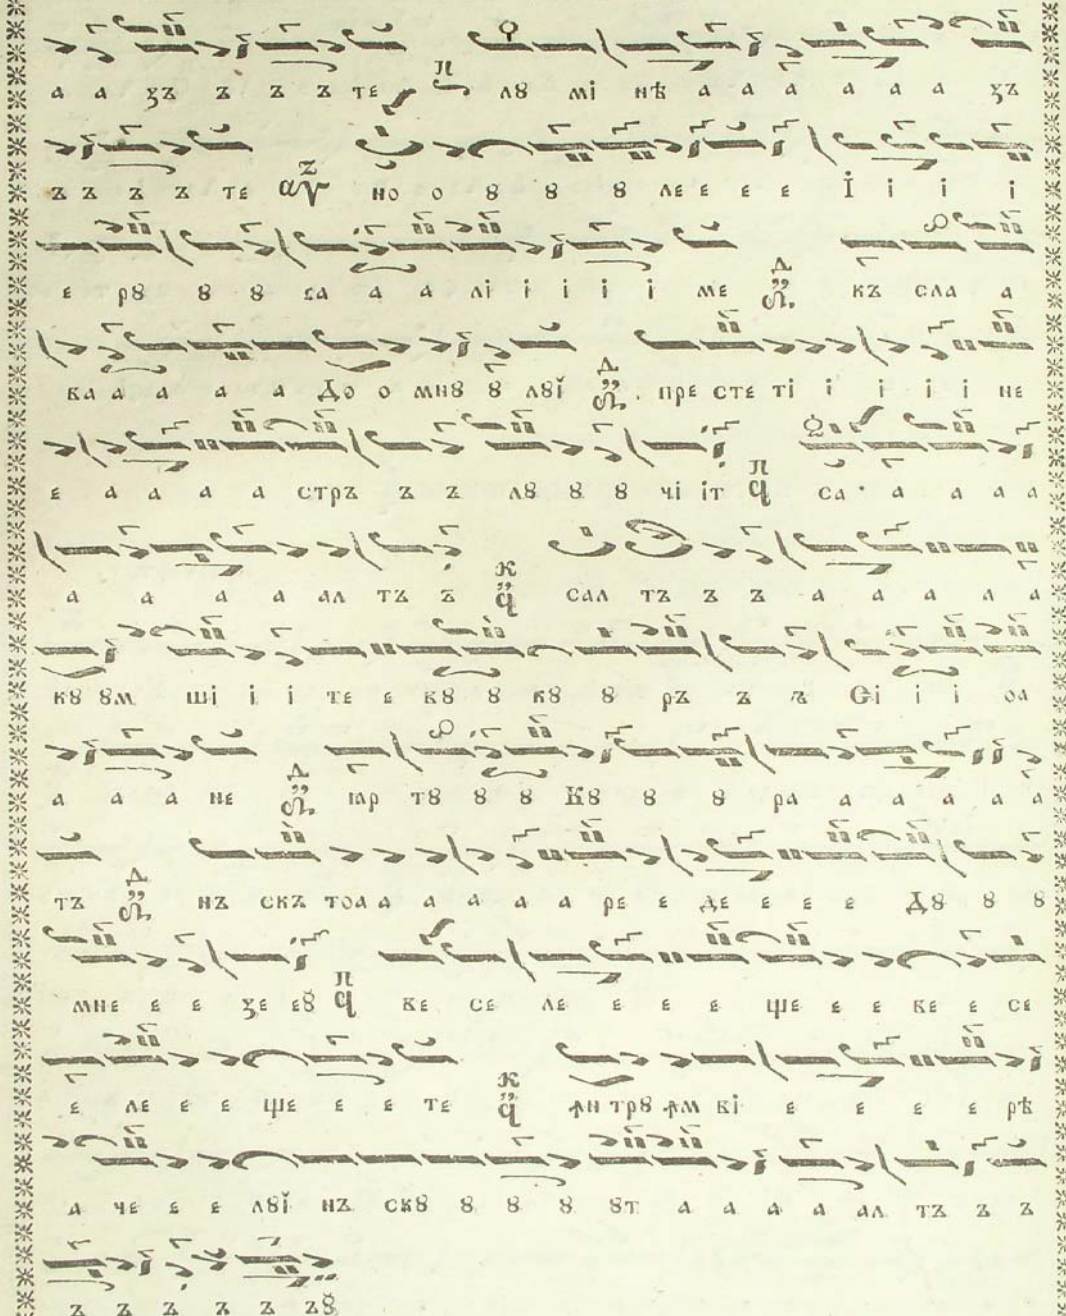 а а ꙁъ ъ ъ ъ те п лꙋ мі нѣ а а а а а а ꙁъ
ъ ъ ъ ъ те но о ꙋ ꙋ ꙋ ле е е е І і і і
е рꙋ ꙋ ꙋ са а а лі і і і і ме д къ сла а
ва а а а а До о мнꙋ ꙋ лꙋй д пре сте ті і і і і не
е а а а а стръ ъ ъ лꙋ ꙋ ꙋ чі іт п са а а а а
а а а а ал тъ ъ к сал тъ ъ ъ а а а а а
кꙋ ꙋм ші і і те е бꙋ ꙋ кꙋ ꙋ ръ ъ ъ Сі і і оа
а а а не д іар тꙋ ꙋ ꙋ Кꙋ ꙋ ꙋ ра а а а а а
тъ д нъ скъ тоа а а а а а ре е де е е е Дꙋ ꙋ ꙋ
мне е е ꙁе еꙋ п ве се ле е е е ще е е ве е се
е ле е е ще е е те к ꙟн трꙋ ꙟм бі е е е е рѣ
а че е е лꙋй нъ скꙋ ꙋ ꙋ ꙋ ꙋт а а а а ал тъ ъ ъ
ъ ъ ъ ъ ъ ъꙋ